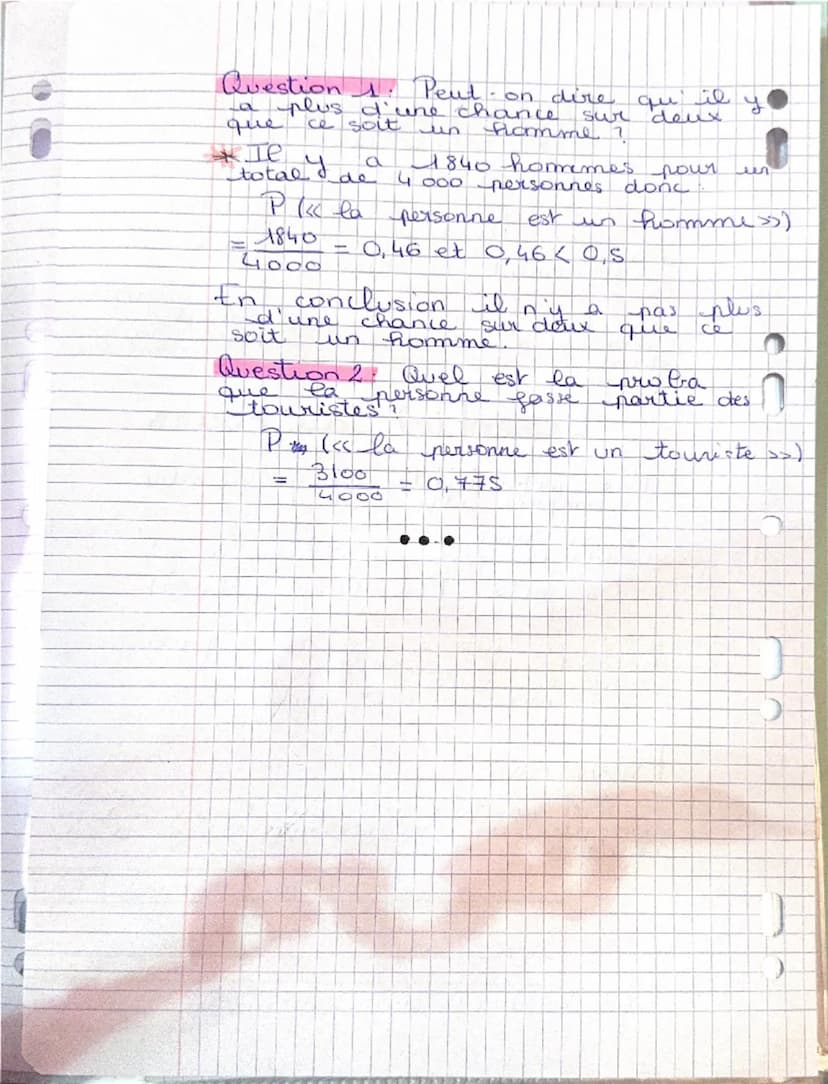 Question 1: Peut-on dire qu'il y
a plus d'une chance sur deux
que ce soit un homme ?
* Il y a 1840 hommes pour un
total de 4 000 personnes donc :
P (<< la personne est un homme >>)
= 1840/4000 = 0,46 et 0,46 < 0,5
En conclusion il n'y a pas plus
d'une chance sur deux que ce
soit un homme.
Question 2: Quel est la proba
que la personne fasse partie des
touristes ?
P (<< la personne est un touriste >>)
= 3100/4000 = 0,775